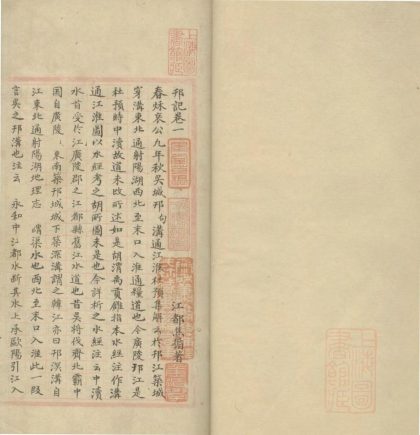 邗記卷一
江都焦循著
春秋哀公九年秋吳城邗句溝通江淮杜預集解云於邗江築城
穿溝東北通射陽湖西北至末口入淮通糧道也今廣陵邗江是
杜預時中瀆故道未改所述如是胡渭禹貢錐指本水經注作溝
通江淮圖以水經考之胡所圖未是也今詳析之水經注云中瀆
水首受於江廣陵郡之江都縣舊江水道也昔吳將伐齊北霸中
國自廣陵 東南築邗城城下築深溝謂之韓江亦曰邗溟溝自
江東北通射陽湖地理志 謂渠水也西北至末口入淮此一段
言吳之邗溝也注云 永和中江都水斷其水上承歐陽引江入